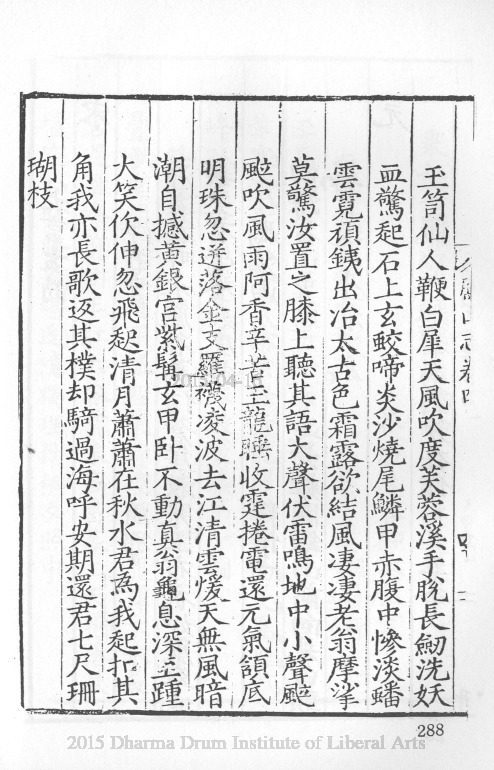 玉笥仙人鞭白犀天風吹度芙蓉溪手脫長劒洗妖
血驚起石上玄蛟啼炎沙燒尾鱗甲赤腹中慘淡蟠
雲霓頑銕出冶太古色霜露欲結風凄凄老翁摩挲
莫驚汝置之膝上聽其語大聲伏雷鳴地中小聲颭
颭吹風雨阿香辛苦玉龍睡收霆捲電還元氣頷底
明珠忽迸落金支羅襪凌波去江清雲煖天無風暗
潮自撼黃銀宮紫髯玄甲卧不動真翁龜息深至踵
大笑欠伸忽飛起清月蕭蕭在秋水君為我起扣其
角我亦長歌返其樸却騎過海呼安期還君七尺珊
瑚枝
山志卷四
288
2015 Dharma Drum Institute of Liberal Arts